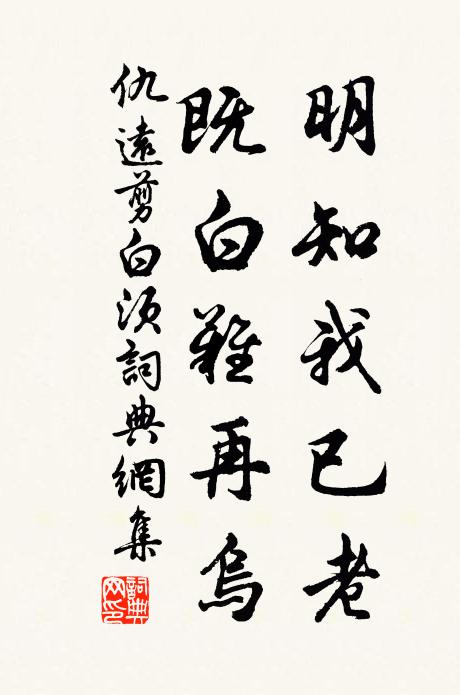 明知我已老
既白難再烏
仇遠剪白須詞典網集
詞典
网印